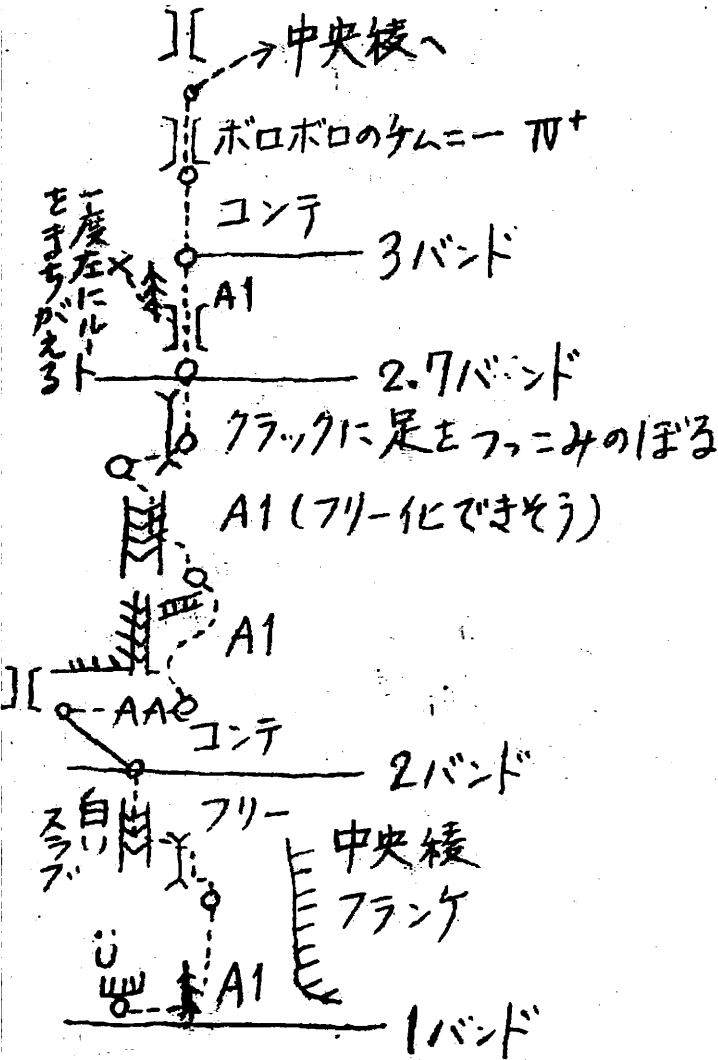 中央綾へ
ボロボロのチムニー Ⅳ+
コンテ
3バンド
一度左にルート
をまちがえる
A1
2.7バンド
クラックに足をつっこみのぼる
A1(フリー化できそう)
A1
AA
コンテ
2バンド
フリー
白い
スラブ
中央綾
フランケ
A1
1バンド